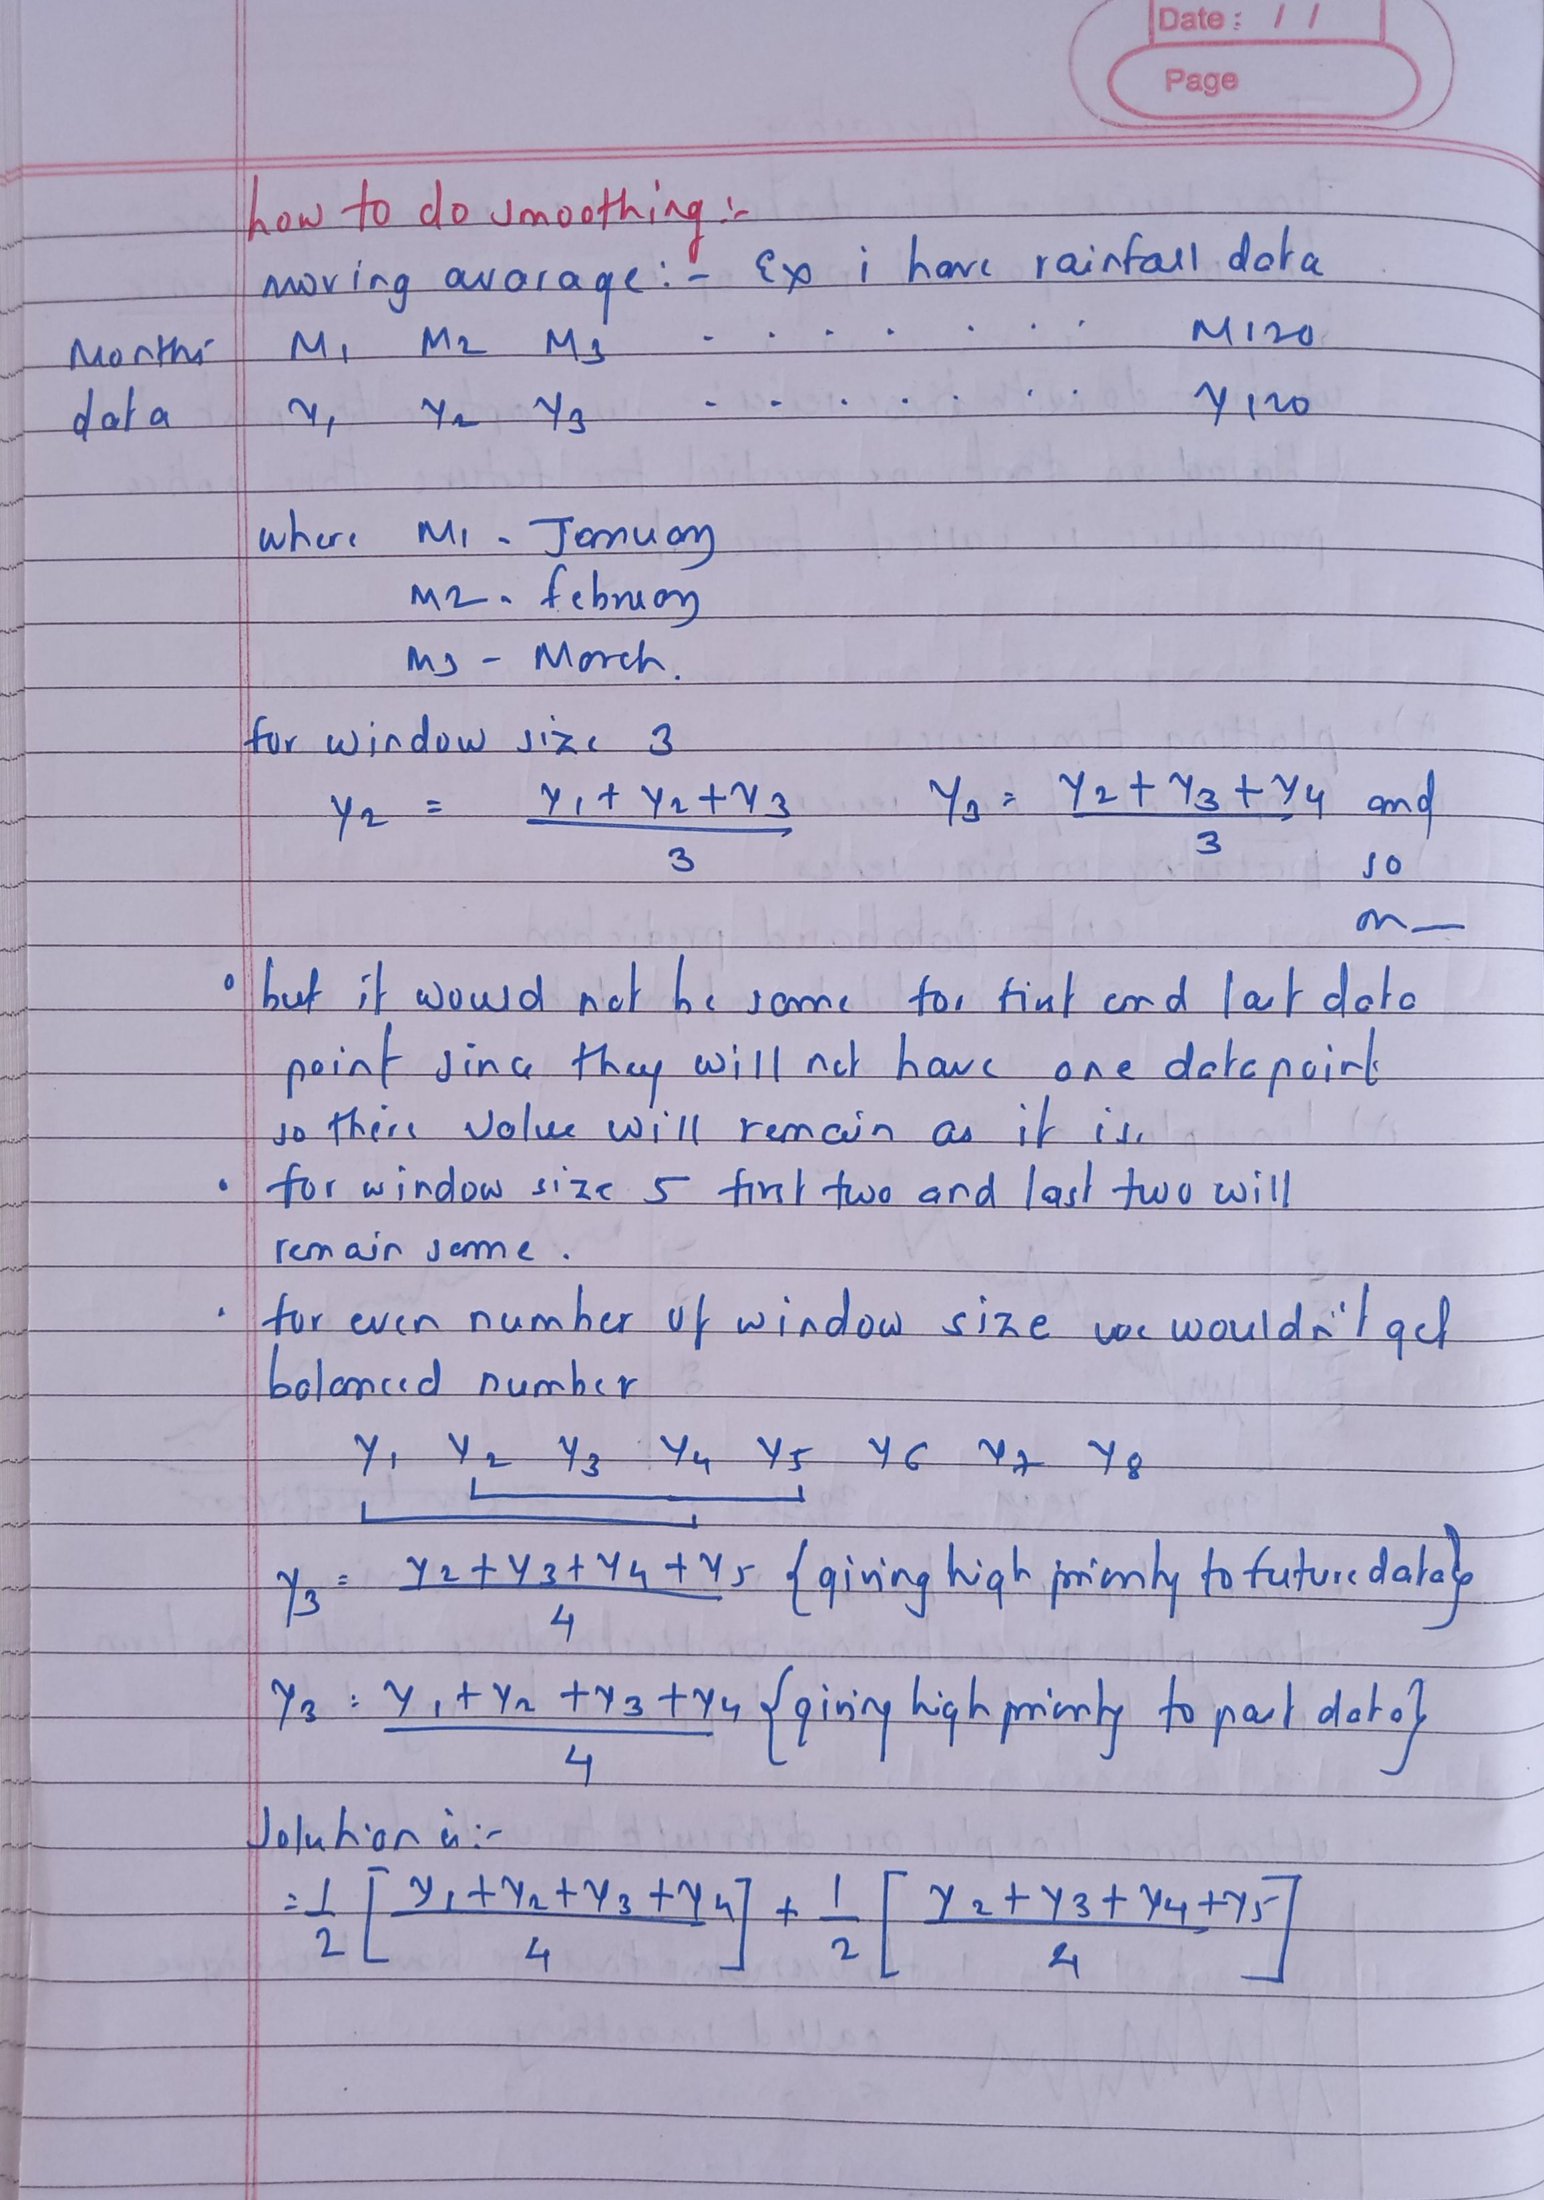 Date : / /
Page
how to do smoothing :-
moving avarage :- Ex i have rainfall data
Months M1 M2 M3 . . . . . . . M120
data y1 y2 y3 . . . . . . . y120
where M1 - January
M2 - february
M3 - March.
for window size 3
y2 = (y1 + y2 + y3)/3 y3 = (y2 + y3 + y4)/3 and
so
on —
• but it would not be same for first and last data
point since they will not have one datapoint
so there value will remain as it is.
• for window size 5 first two and last two will
remain same.
• for even number of window size we wouldn't get
balanced number
y1 y2 y3 y4 y5 y6 y7 y8
y3 = (y2 + y3 + y4 + y5)/4 {giving high priority to future data}
y3 = (y1 + y2 + y3 + y4)/4 {giving high priority to past data}
Solution is :-
= 1/2 [(y1 + y2 + y3 + y4)/4] + 1/2 [(y2 + y3 + y4 + y5)/4]